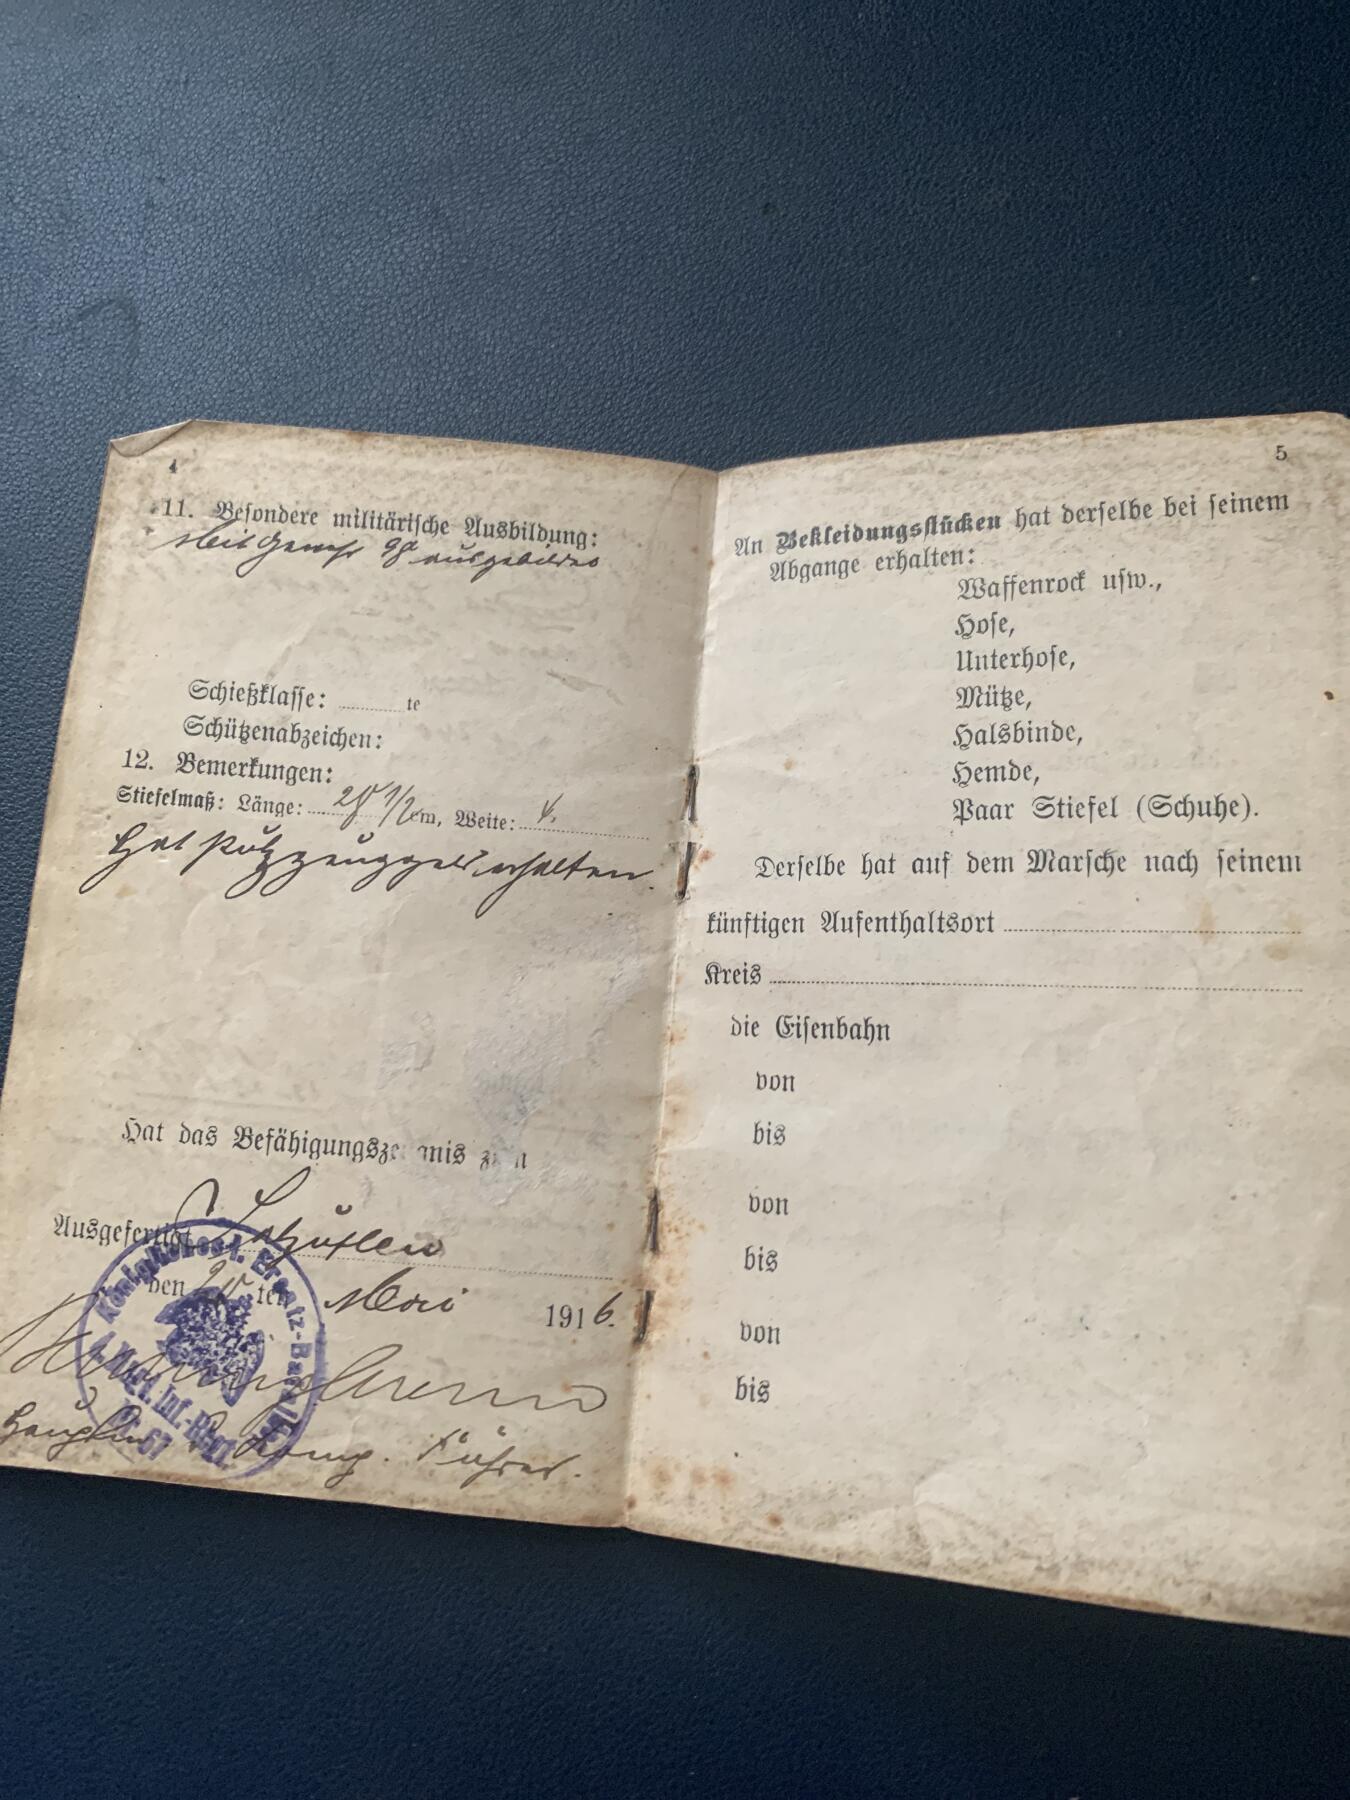 4
11. Besondere militärische Ausbildung:
Mit Gewehr 98 ausgebildet
Schießklasse: te
Schützenabzeichen:
12. Bemerkungen:
Stiefelmaß: Länge: 28 1/2 cm, Weite: 4.
Hat Putzzeuggeld erhalten.
Hat das Befähigungsze nis z
Ausgefertigt
den ten Mai 1916.
Königliches 1. Ersatz-Batl.
4. Magd. Inf.-Regt.
Nr. 67
Hauptm. u. Komp. Führer.
5
An Bekleidungsstücken hat derselbe bei seinem
Abgange erhalten:
Waffenrock usw.,
Hose,
Unterhose,
Mütze,
Halsbinde,
Hemde,
Paar Stiefel (Schuhe).
Derselbe hat auf dem Marsche nach seinem
künftigen Aufenthaltsort
Kreis
die Eisenbahn
von
bis
von
bis
von
bis